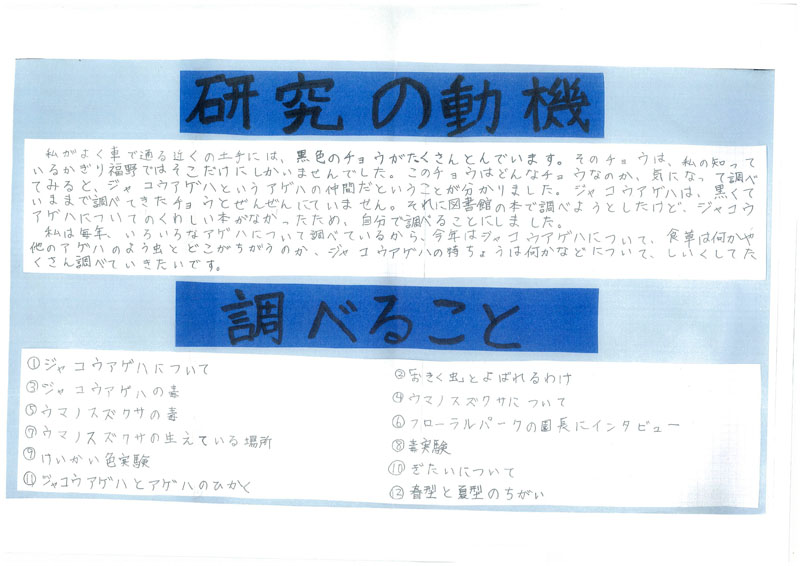 研究の動機
私がよく車で通る近くの土手には、黒色のチョウがたくさんとんでいます。そのチョウは、私の知って
いるかぎり福野ではそこだけにしかいませんでした。このチョウはどんなチョウなのか、気になって調べ
てみると、ジャコウアゲハというアゲハの仲間だということが分かりました。ジャコウアゲハは、黒くて
いままで調べてきたチョウとぜんぜんにていません。それに図書館の本で調べようとしたけど、ジャコウ
アゲハについてのくわしい本がなかったため、自分で調べることにしました。
私は毎年、いろいろなアゲハについて調べているから、今年はジャコウアゲハについて、食草は何かや
他のアゲハのよう虫とどこがちがうのか、ジャコウアゲハの特ちょうは何かなどについて、しいくしてた
くさん調べていきたいです。
調べること
①ジャコウアゲハについて
②「おきく虫」とよばれるわけ
③ジャコウアゲハの毒
④ウマノスズクサについて
⑤ウマノスズクサの毒
⑥フローラルパークの園長にインタビュー
⑦ウマノスズクサの生えている場所
⑧毒実験
⑨けいかい色実験
⑩ぎたいについて
⑪ジャコウアゲハとアゲハのひかく
⑫春型と夏型のちがい